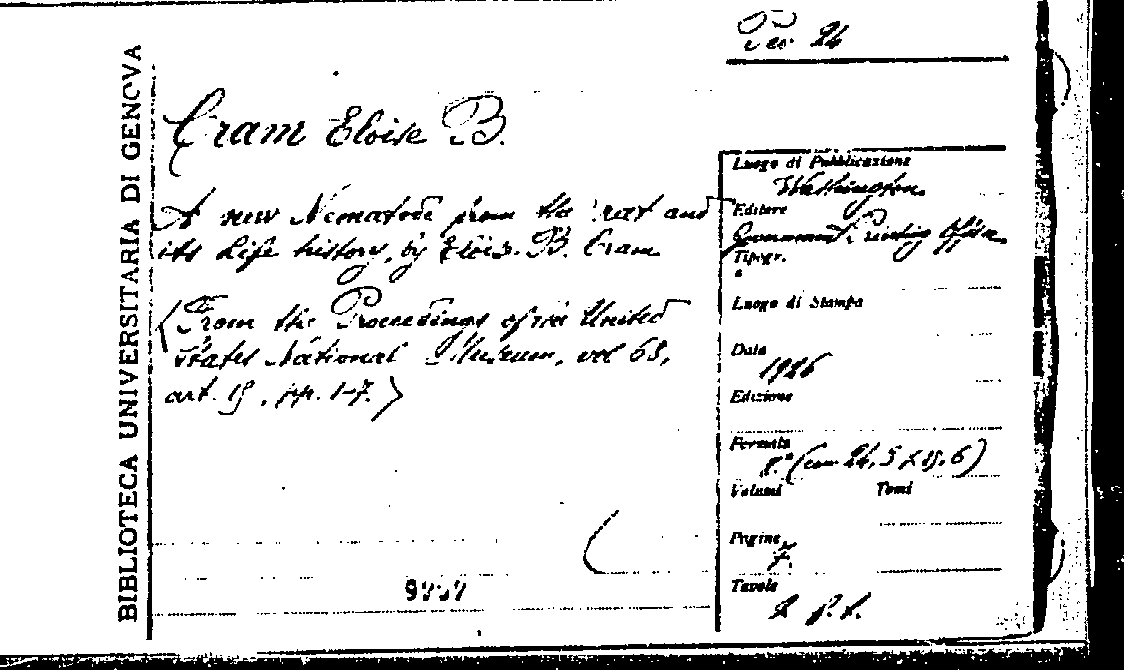 24
BIBLIOTECA UNIVERSITARIA DI GENOVA
Cram Eloise B.
A new Nematode from the rat and
its life history, by Eloise B. Cram
(From the Proceedings of the United
States National Museum, vol 68,
art. 15, pp. 1-7.)
Luogo di Pubblicazione
Washington
Editore
Government Printing Office
Tipogr.
Luogo di Stampa
Data
1926
Edizione
Formato
8.° (cm 24,5 x 15,6)
Volumi Tomi
Pagine
7.
Tavole